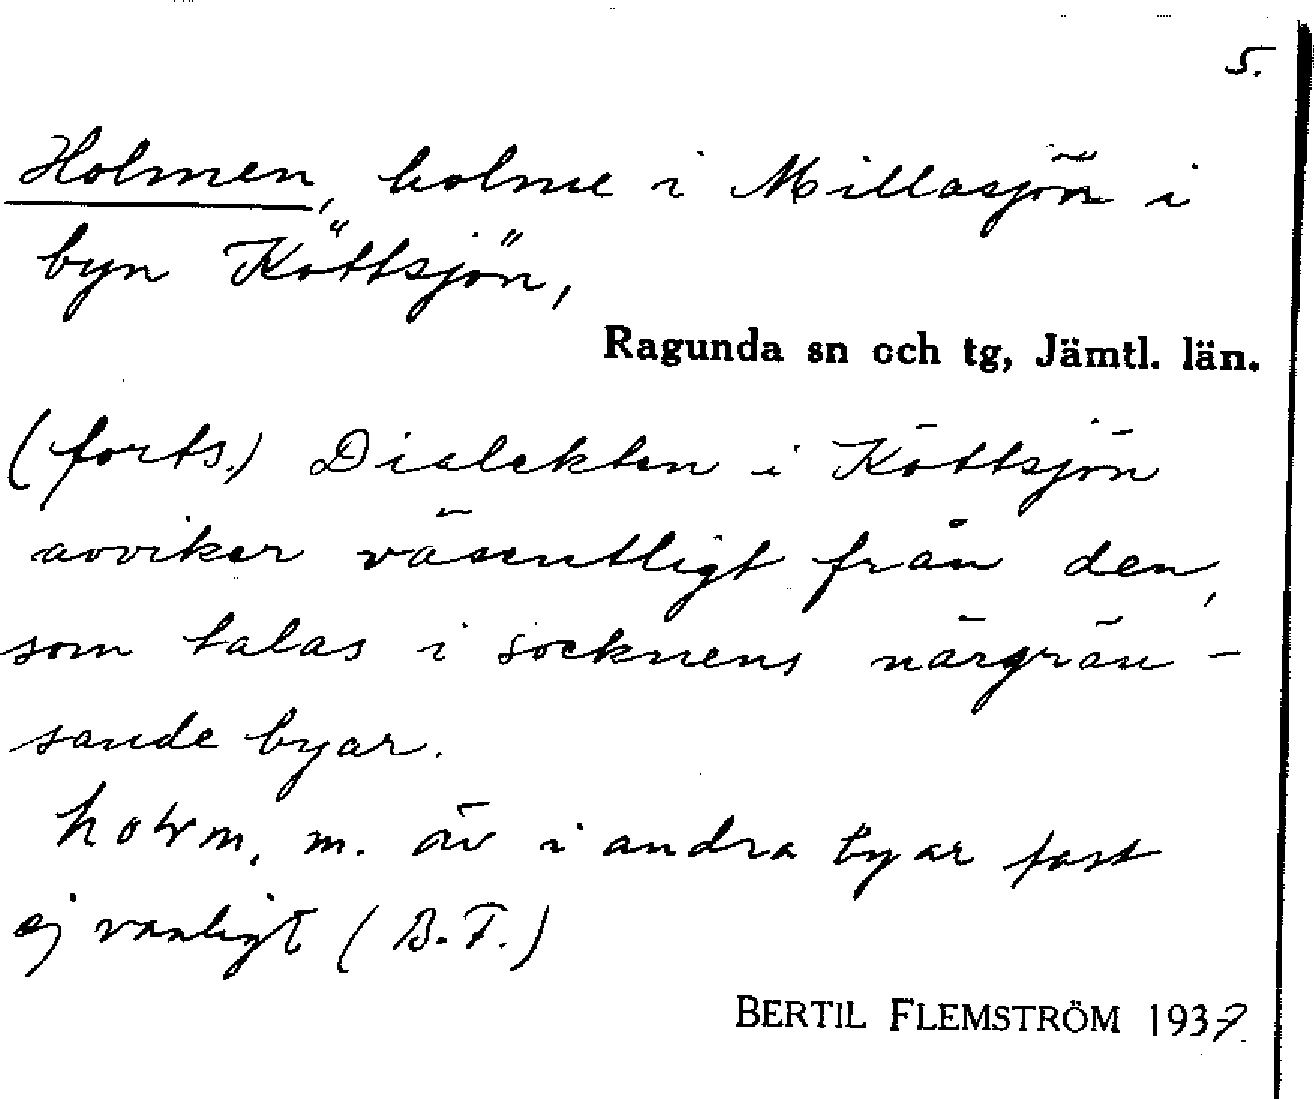 5.
Holmen, holme i Millasjön i
byn Köttsjön,
Ragunda sn och tg, Jämtl. län.
(forts.) Dialekten i Köttsjön
avviker väsentligt från den,
som talas i socknens närgrän-
sande byar.
m. äv i andra byar fast
ej vanligt (B.F.)
BERTIL FLEMSTRÖM 1937